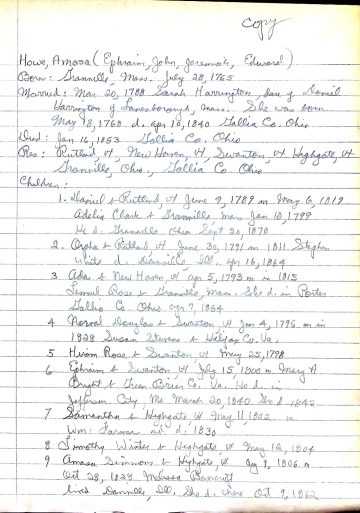 copy
Howe, Amasa (Ephraim, John, Jeremiah, Edward)
Born: Granville, Mass. July 28, 1765
Married: Mar. 20, 1788 Sarah Harrington, dau of Daniel
Harrington of Lanesborough, Mass. She was born
May 18, 1768 d. Apr 10, 1840 Gallia Co. Ohio
Died: Jan 16, 1853 Gallia Co. Ohio
Res: Rutland, Vt, New Haven, Vt, Swanton, Vt Highgate, Vt
Granville, Ohio, Gallia Co. Ohio
Children:
1. Daniel b Rutland, Vt June 9, 1789 m May 6, 1819
Adelia Clark b Granville, Mass Jan 10, 1799
He d. Granville Ohio Sept 20, 1870
2. Orpha b Rutland Vt June 30, 1791 m 1811 Stephen
White d. Danville, Ill. Apr 16, 1864
3 Ada b New Haven, Vt Apr 5, 1793 m in 1815
Lemuel Rose b Granville, Mass. She d. in Porter
Gallia Co. Ohio Apr 7, 1864
4 Norval Douglas b Swanton Vt Jan 4, 1796 m in
1828 Susan b Co, Va.
5 Hiram Rose b Swanton Vt May 25, 1798
6 Ephraim b Swanton Vt July 15, 1800 m Mary A
Bright b Co. Va. He d. in
Jefferson City, Mo March 20, 1840 She d 1842
7 Samantha b Highgate Vt May 11, 1802 m
Wm. Farmer d. 1830
8 Timothy Winter b Highgate, Vt May 12, 1804
9 Amasa Simmons b Highgate, Vt 1806 m
Oct 28, 1828 Melissa Bancroft
lived Danville, Ill, She d. there Oct 9, 1862